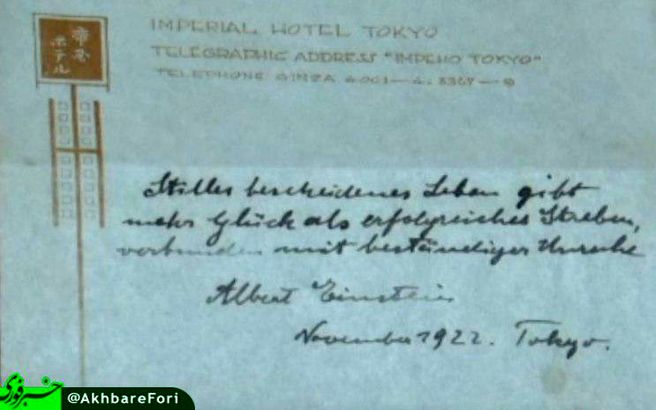 帝谷
ホテル
IMPERIAL HOTEL TOKYO
TELEGRAPHIC ADDRESS "IMPEHO TOKYO"
TELEPHONE GINZA
Stilles bescheidenes Leben gibt
mehr Glück als erfolgreiches Streben,
verbunden mit beständiger Unruhe
Albert Einstein
November 1922. Tokyo.
خبرفوری
@AkhbareFori